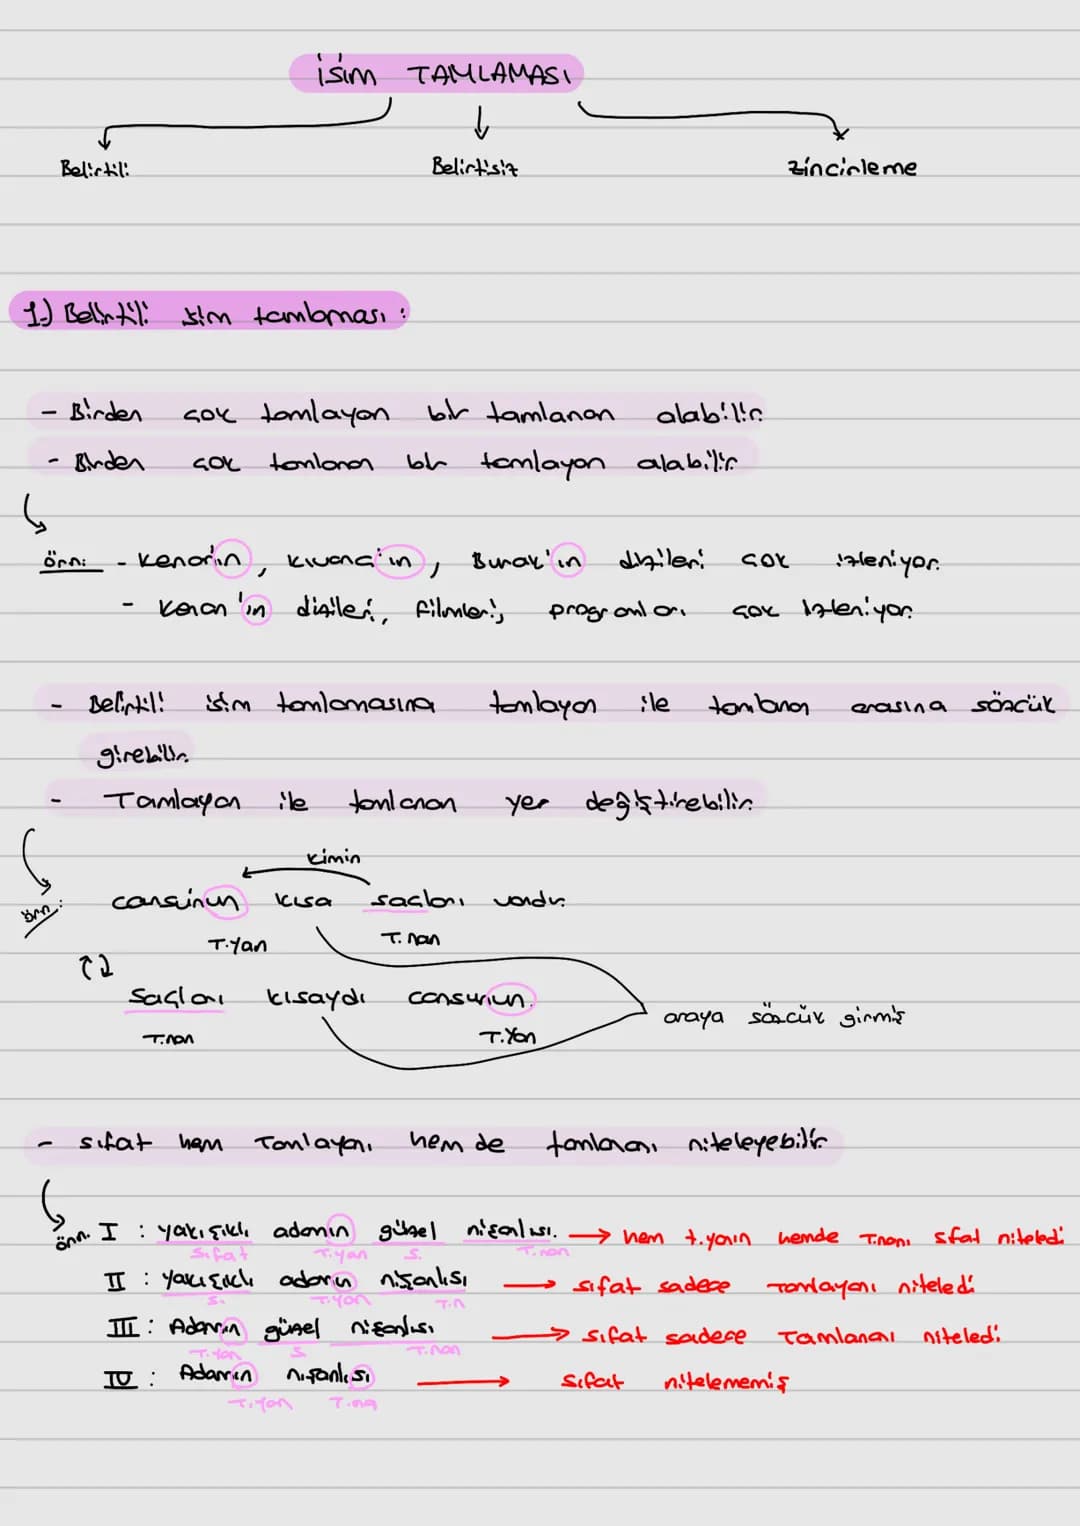 İSİM TAMLAMASI
Belirtili Belirtisiz Zincirleme
1-) Belirtili isim tamlaması :
- Birden çok tamlayan bir tamlanan alabilir.
- Birden çok tamlanan bir tamlayan alabilir.
örn: - Kenan'ın, Kıvanç'ın, Burak'ın dizileri çok izleniyor.
- Kenan'ın dizileri, filmleri, programları çok izleniyor.
- Belirtili isim tamlamasına tamlayan ile tamlanan arasına sözcük
girebilir.
- Tamlayan ile tamlanan yer değiştirebilir.
kimin
örn: cansunun kısa saçları vardır.
T.yan T.nan
saçları kısaydı cansunun.
araya sözcük girmiş
T.nan T.yan
- sıfat hem Tamlayanı hem de tamlananı niteleyebilir.
örn. I : yakışıklı adamın güzel nişanlısı. → hem t.yanın hemde T.nanı sıfat niteledi.
sıfat T.yan s. T.nan
II : yakışıklı adamın nişanlısı → sıfat sadece Tamlayanı niteledi
s. T.yan T.n
III : Adamın güzel nişanlısı → sıfat sadece Tamlananı niteledi.
T.yan s. T.nan
IV : Adamın nişanlısı → sıfat nitelememiş
T.yan T.na